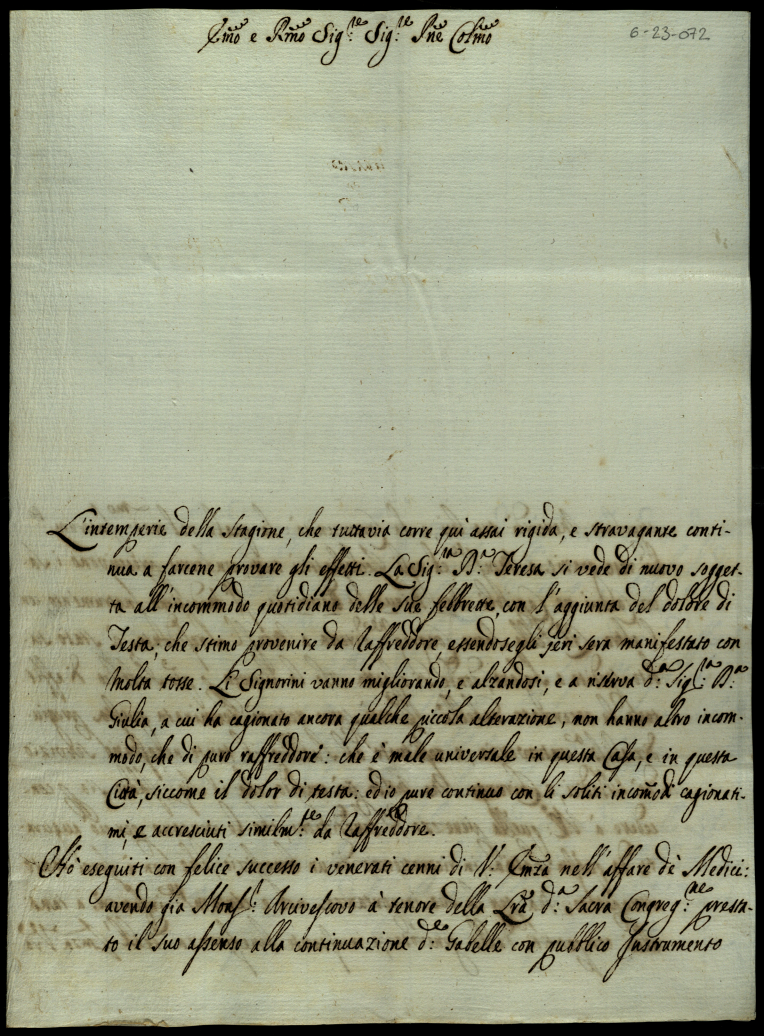 Emo e Rmo Sig.re Sig.re Pne Colmo
6-23-072
L'intemperie della Stagione, che tuttavia corre qui assai rigida, e stravagante conti-
nua a farcene provare gli effetti. La Sig.ra Ba. Teresa si vede di nuovo sogget-
ta all'incommodo quotidiano delle sue febbrette, con l'aggiunta del dolore di
Testa, che stimo provenire da Raffreddore, essendosegli jeri sera manifestato con
molta tosse. Li Signorini vanno migliorando, e alzandosi, e a riserva d.a Sig.ra Ba.
Giulia, a cui ha cagionato ancora qualche piccola alterazione, non hanno altro incom-
modo, che di puro raffreddore: che è male universale in questa Casa, e in questa
Città, siccome il dolor di testa: ed io pure continuo con li soliti incomodi cagionati-
mi, e accresciuti similm.te da Raffreddore.
Hò eseguiti con felice successo i venerati cenni di V: Emza nell'affare de' Medici:
avendo gia Monsr. Arcivescovo à tenore della Lra d.a Sacra Congreg.ne presta-
to il suo assenso alla continuazione d.e Gabelle con pubblico Instrumento